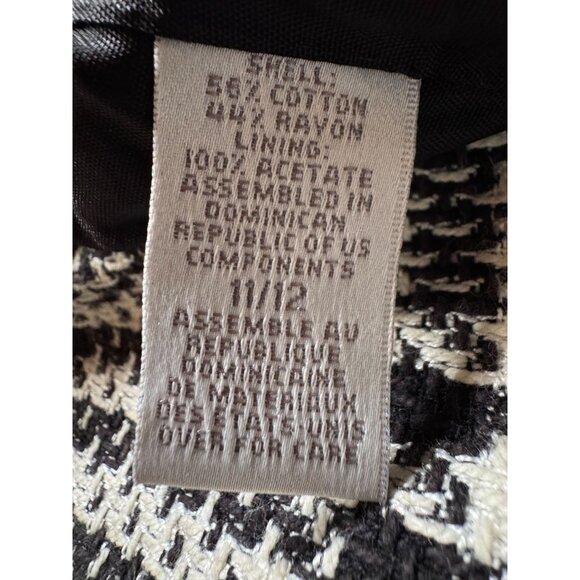 SHELL:
56% COTTON
44% RAYON
LINING:
100% ACETATE
ASSEMBLED IN
DOMINICAN
REPUBLIC OF US
COMPONENTS
11/12
ASSEMBLE AU
REPUBLIQUE
DOMINICAINE
DE MATERIAUX
DES ETATS UNIS
OVER FOR CARE